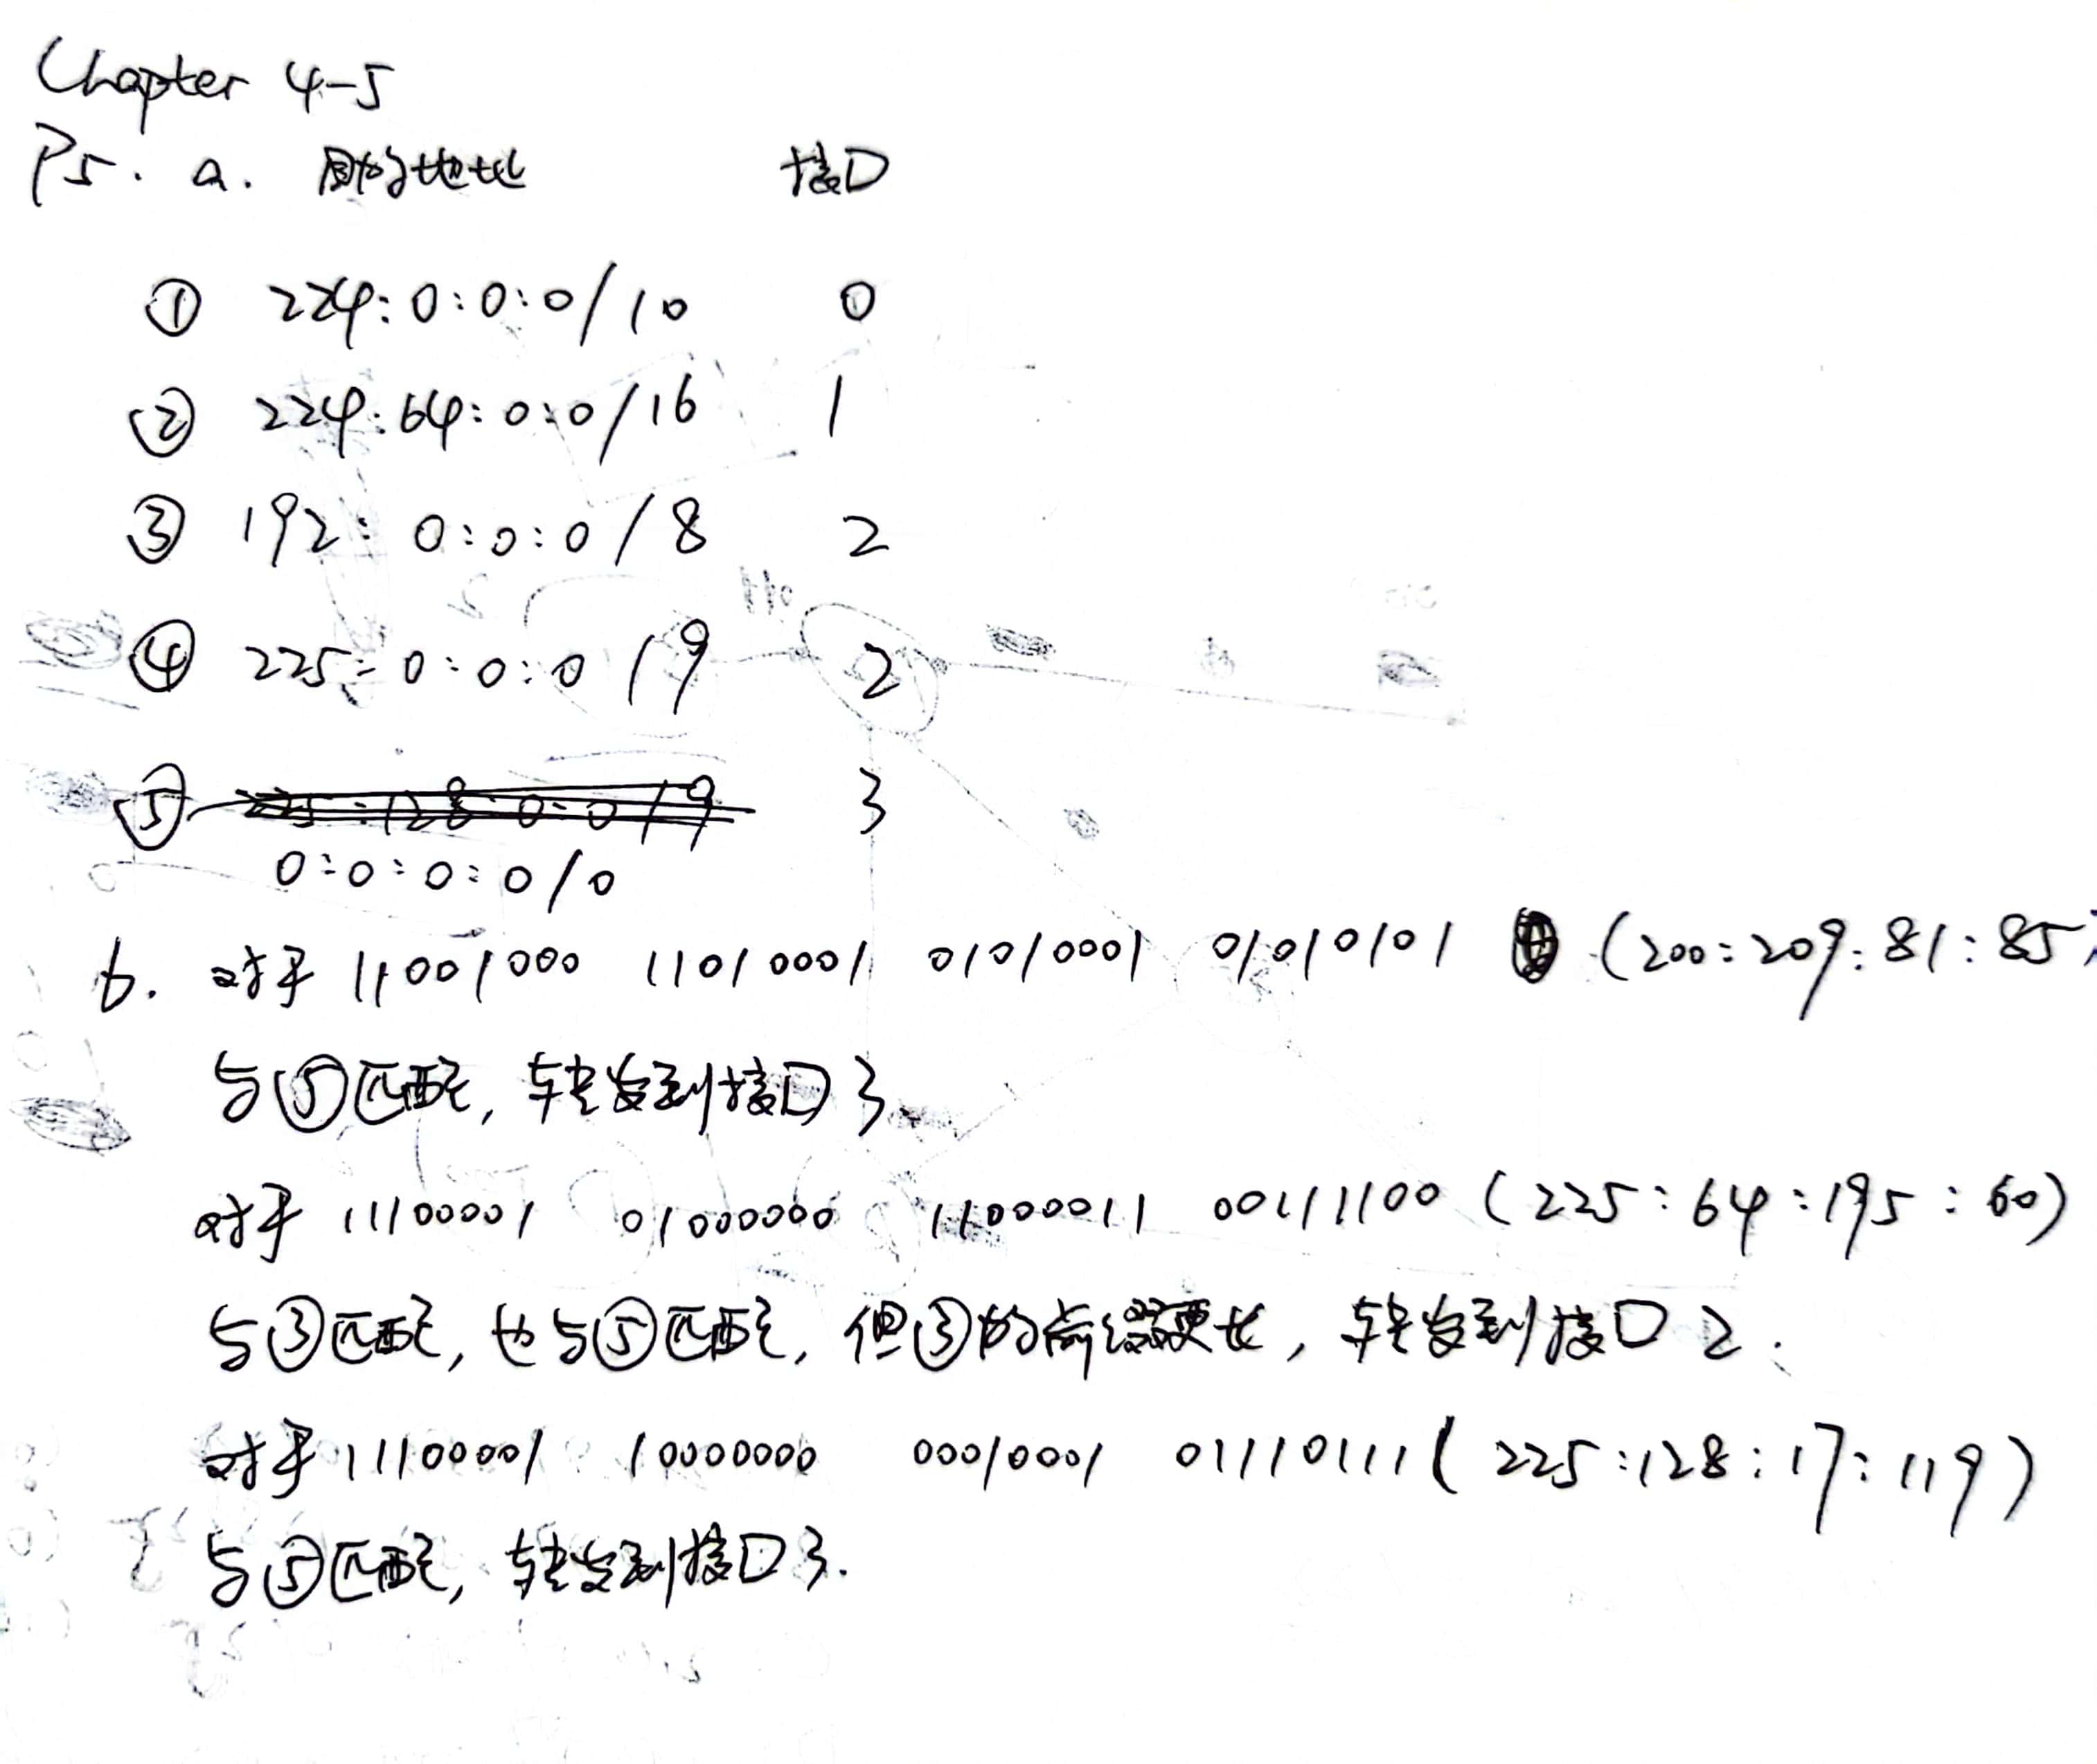 Chapter 4-5
P5. a. 目的地址 接口
① 224:0:0:0/10 0
② 224:64:0:0/16 1
③ 192:0:0:0/8 2
④ 225:0:0:0/9 2
⑤ 225:128:0:0/9 3
0:0:0:0/0
b. 对于 11001000 11010001 01010001 01010101 (200:209:81:85)
与⑤匹配, 转发到接口3.
对于 11100001 01000000 11000011 00111100 (225:64:195:60)
与③匹配, 也与⑤匹配, 但③的前缀更长, 转发到接口2.
对于 11100001 10000000 00010001 01110111 (225:128:17:119)
与⑤匹配, 转发到接口3.